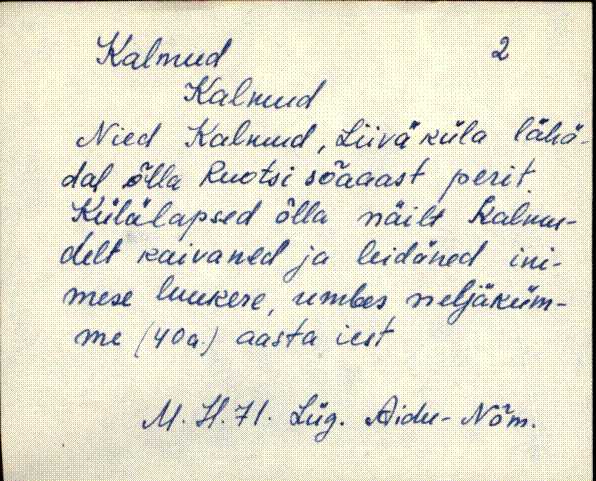 Kalmud 2
Kalmud
Nied Kalmud, Liivä küla lähä-
dal õlla Ruotsi sõaaast perit.
Külälapsed õlla näilt Kalmu-
delt kaivaned ja leidäned ini-
mese luukere, umbes neljäküm-
me (40a.) aasta iest
M. H. 71. Lüg. Aidu-Nõm.